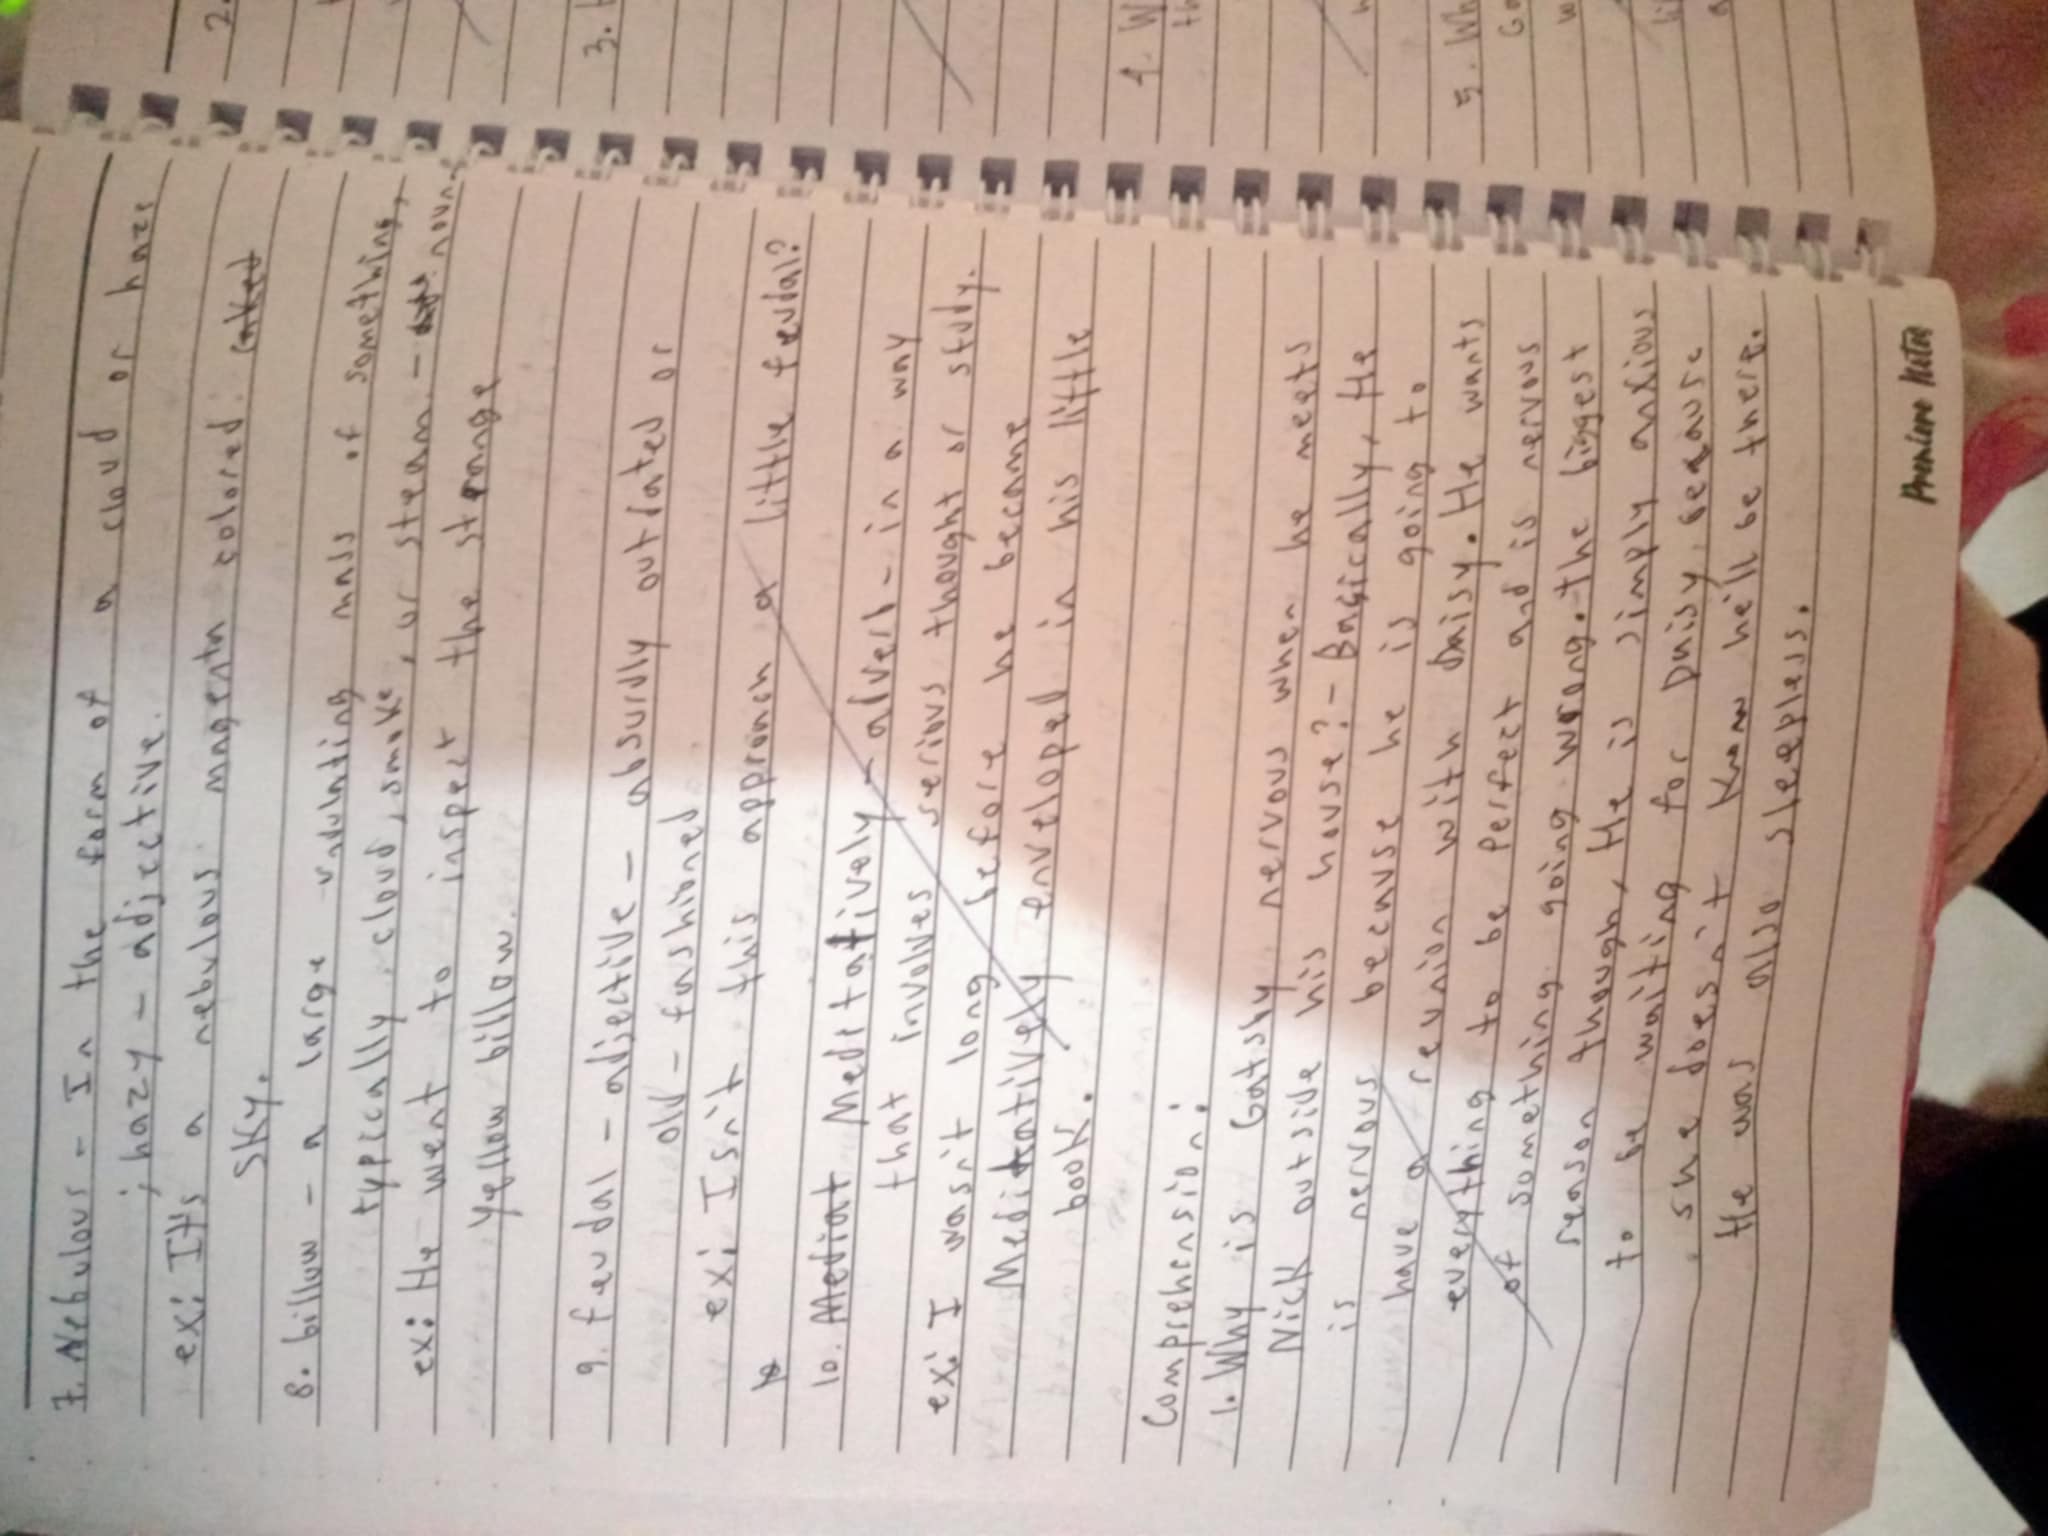 7. Nebulous - In the form of a cloud or haze
; hazy - adjective.
ex: It's a nebulous magenta colored
sky.
8. billow - a large undulating mass of something,
typically cloud, smoke, or steam - noun
ex: He went to inspect the strange
yellow billow.
9. feudal - adjective - absurdly outdated or
old-fashioned
ex: Isn't this approach a little feudal?
10. Mediat Meditatively - adverb - in a way
that involves serious thought or study.
ex: I wasn't long before he became
Meditatively enveloped in his little
book.
Comprehension:
1. Why is Gatsby nervous when he meets
Nick outside his house? - Basically, He
is nervous because he is going to
have a reunion with Daisy. He wants
everything to be perfect and is nervous
of something going wrong. The biggest
reason though, He is simply anxious
to be waiting for Daisy, because
she doesn't know he'll be there.
He was also sleepless.
2.
3.
4. W
th
5. Wh
Ga
w
Premiere Notes